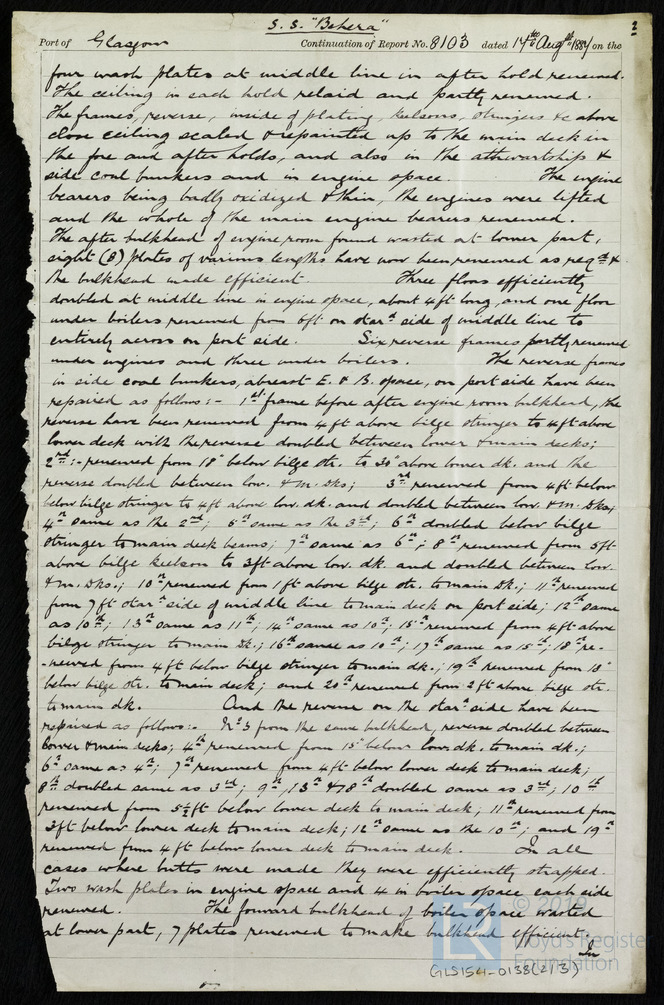 S. S. "Behera"
2
Port of Glasgow Continuation of Report No. 8103 dated 14th Augst 1884 on the
four wash plates at middle line in after hold renewed.
The ceiling in each hold relaid and partly renewed.
The frames, reverse, inside of plating, keelsons, stringers &c above
close ceiling scaled & repainted up to the main deck in
the fore and after holds, and also in the athwartship &
side coal bunkers and in engine space. The engine
bearers being badly oxidized & thin, the engines were lifted
and the whole of the main engine bearers renewed.
The after bulkhead of engine room found wasted at lower part,
eight (8) plates of various lengths have now been renewed as reqd &
the bulkhead made efficient Three floors efficiently
doubled at middle line in engine space, about 4ft long, and one floor
under boilers renewed from 6ft on stard side of middle line to
entirely across on port side. Six reverse frames partly renewed
under engines and three under boilers. The reverse frames
in side coal bunkers, abreast E. & B. space, on port side have been
repaired as follows:- 1st frame before after engine room bulkhead, the
reverse have been renewed from 4ft above bilge stringer to 4ft above
lower deck with the reverse doubled between lower & main decks;
2nd:- renewed from 18" below bilge str. to 30" above lower dk. and the
reverse doubled between low. & m. dks; 3rd renewed from 4ft below
below bilge stringer to 4ft above low. dk. and doubled between low. & m. dks;
4th same as the 2nd; 5th same as the 3rd; 6th doubled below bilge
stringer to main deck beams; 7th same as 6th; 8th renewed from 5ft
above bilge keelson to 3ft above low. dk. and doubled between low.
& m. dks.; 10th renewed from 1ft above bilge str. to main dk.; 11th renewed
from 7ft stard side of middle line to main deck on port side; 12th same
as 10th; 13th same as 11th; 14th same as 10th; 15th renewed from 4ft above
bilge stringer to main dk.; 16th same as 10th; 17th same as 15th; 18th re-
-newed from 4ft below bilge stringer to main dk.; 19th renewed from 18"
below bilge str. to main deck; and 20th renewed from 2ft above bilge str.
to main dk. And the reverse on the stard side have been
repaired as follows:- No 3 from the same bulkhead, reverse doubled between
lower & main decks; 4th renewed from 15" below low. dk. to main dk.;
6th same as 4th; 7th renewed from 4ft below lower deck to main deck;
8th doubled same as 3rd; 9th, 13th & 18th doubled same as 3rd; 10th
renewed from 5½ft below lower deck to main deck; 11th renewed from
3ft below lower deck to main deck; 12th same as the 10th; and 19th
renewed from 4ft below lower deck to main deck. In all
cases where butts were made they were efficiently strapped.
Two wash plates in engine space and 4 in boiler space each side
renewed. The forward bulkhead of boiler space wasted
at lower part, 7 plates renewed to make bulkhead efficient.
In
© 2019
LR
Lloyd's Register
Foundation
GLS154-0138(2/3)